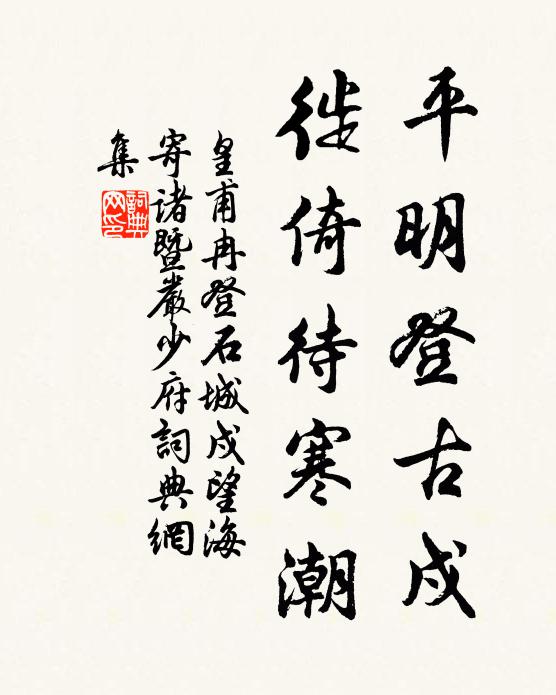 平明登古戍
徙倚待寒潮
皇甫冉登石城戍望海
寄诸暨嚴少府詞典網
集
詞典網印